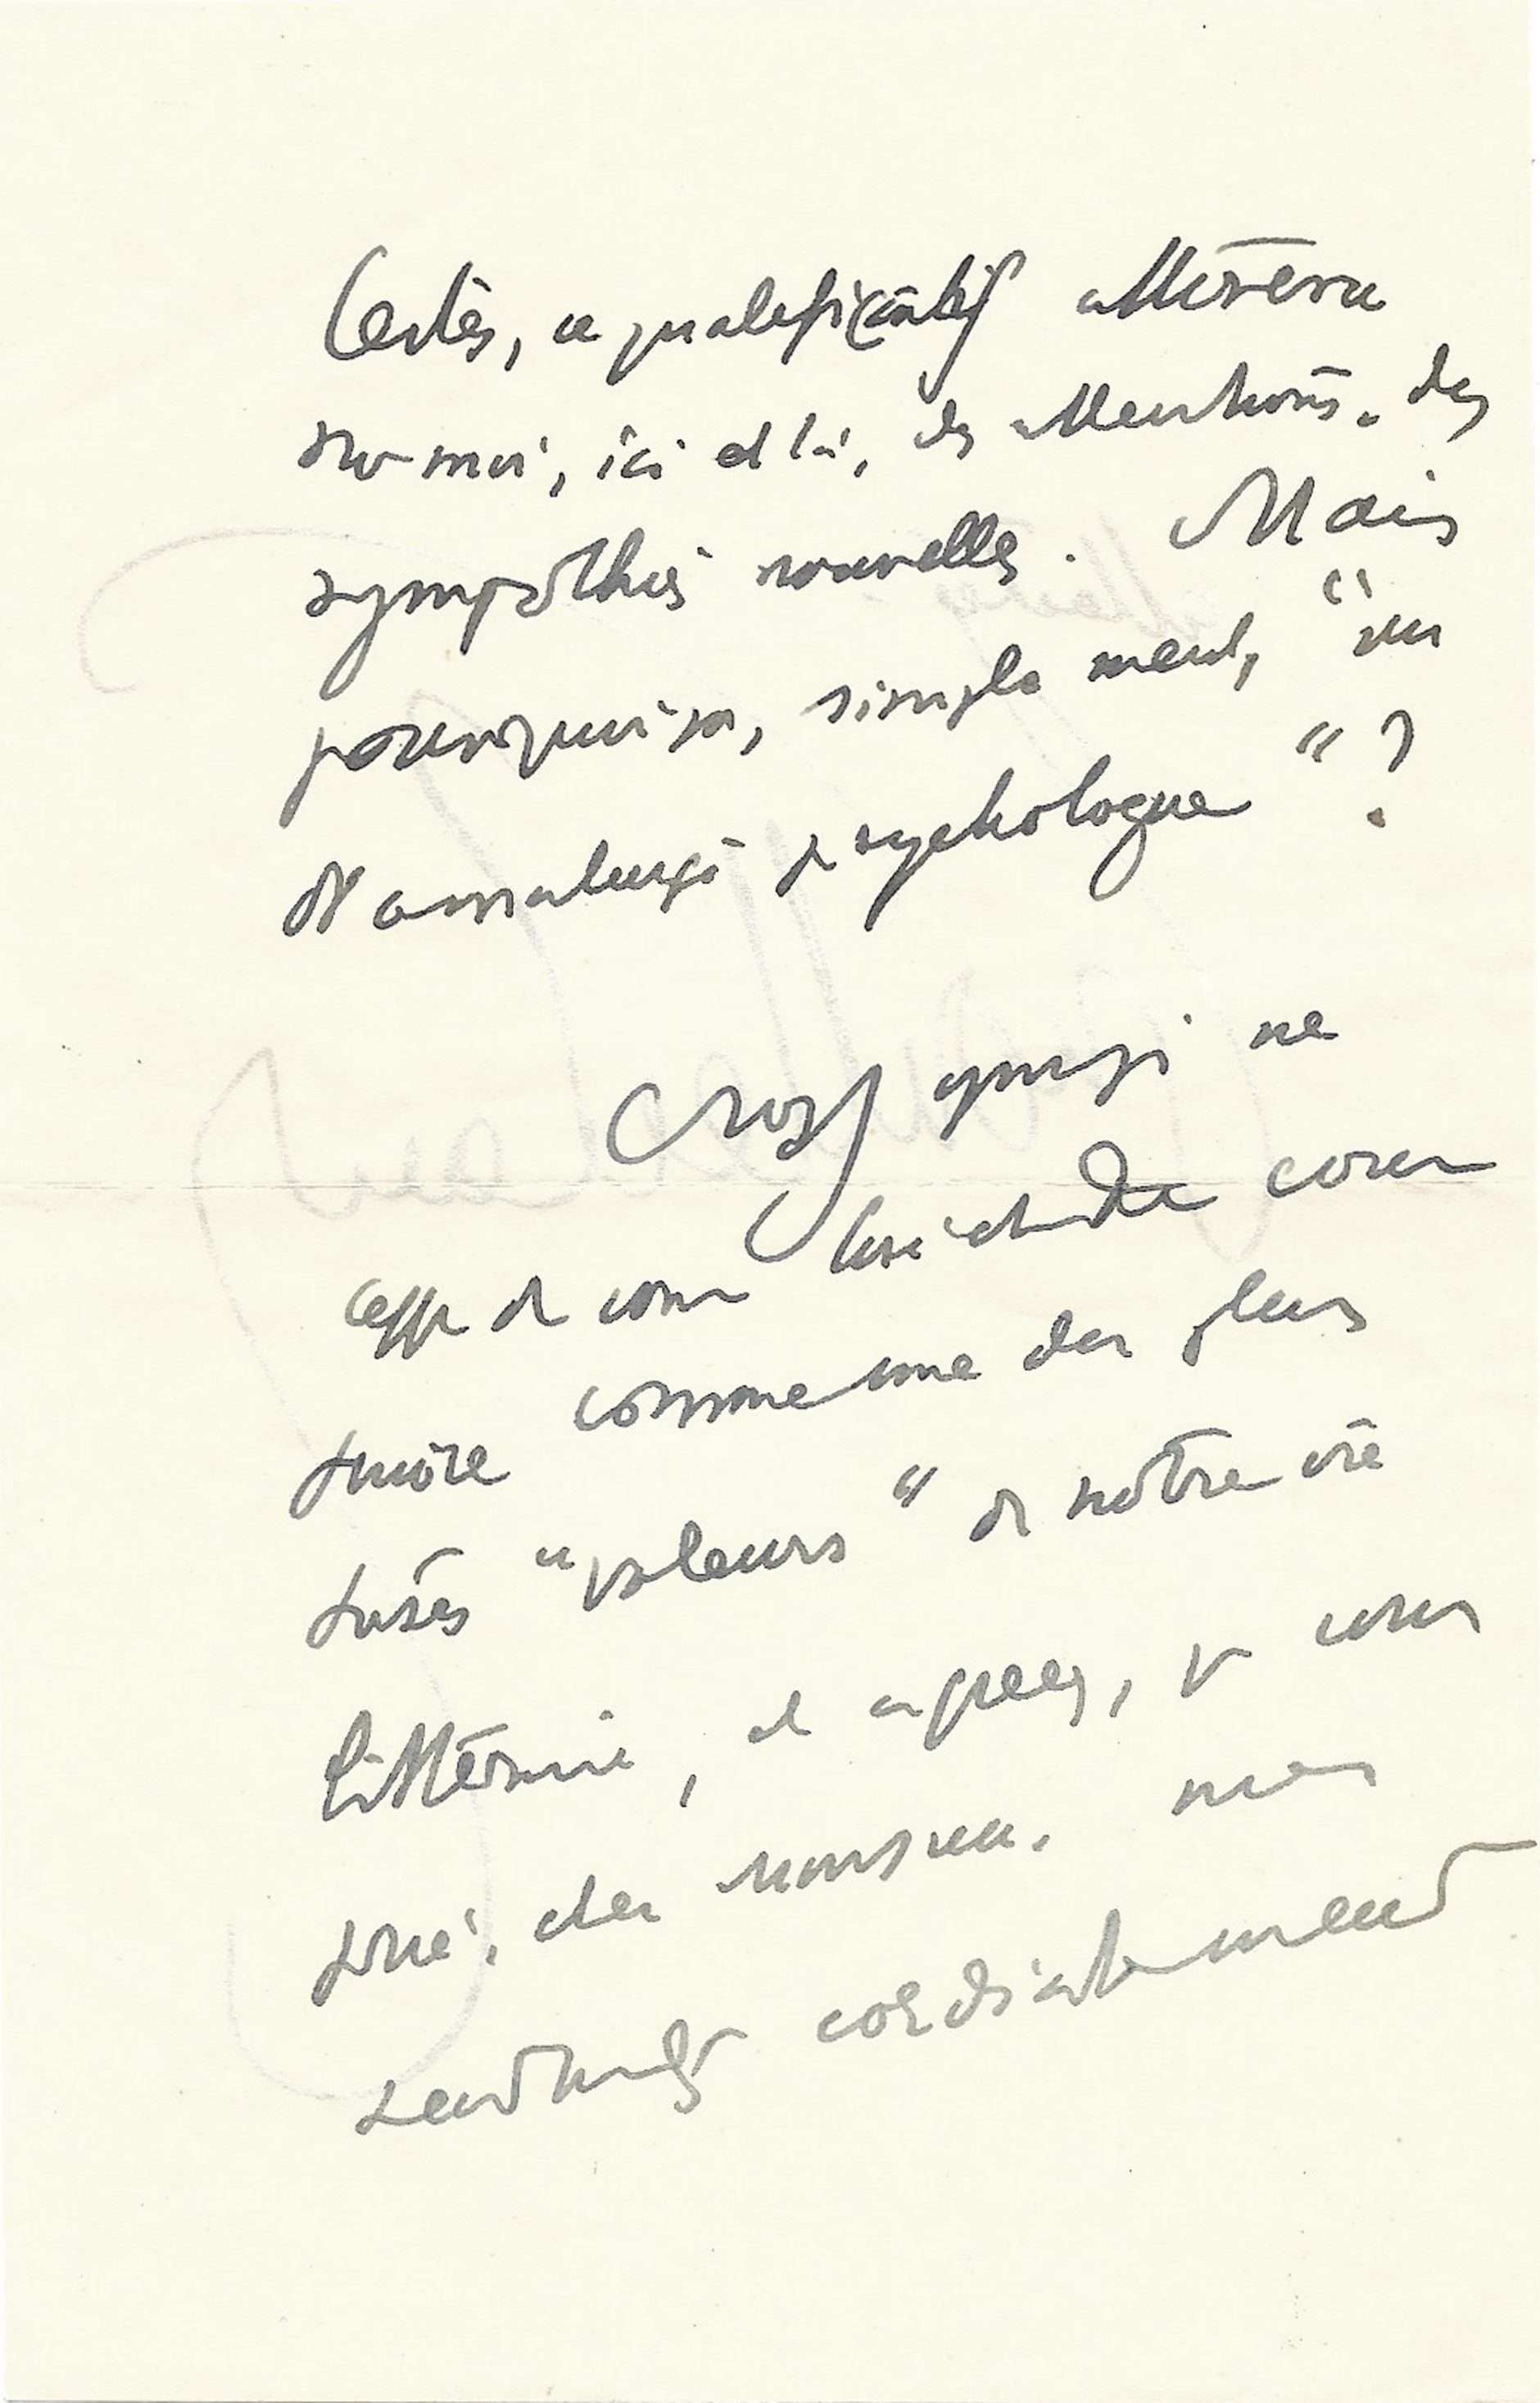 Certes, ce qualificatif attirera
sur moi, ici et là, des attentions, des
sympathies nouvelles. Mais
pourquoi pas, simplement, "un
dramaturge psychologue" ?
Croyez que je ne
cesse de vous considérer comme
comme une des plus
sûres "valeurs" de notre vie
littéraire, et agréez, je vous
prie, cher Monsieur, mes
sentiments cordialement